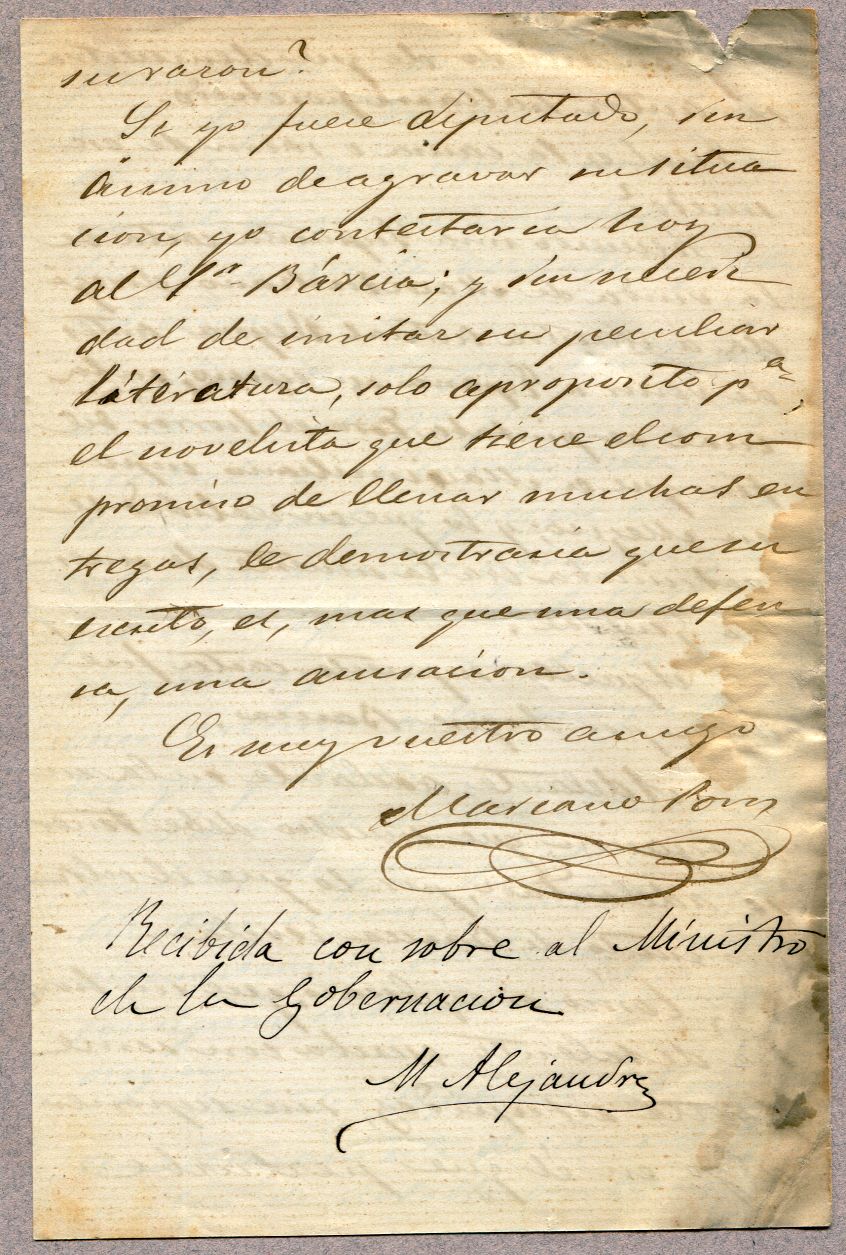 su razon?
Si yo fuese diputado, sin
ánimo de agravar su situa
cion, yo contestaria hoy
al Sr. Bárcia; y sin necesi
dad de imitar su peculiar
literatura, solo aproposito pa.
el novelista que tiene el com
promiso de llenar muchas en
tregas, le demostraria que su
escrito, es, mas que una defen
sa, una acusacion.
Es muy vuestro amigo
Mariano Pons
Recibida con sobre al Ministro
de la Gobernacion
M Alejandro